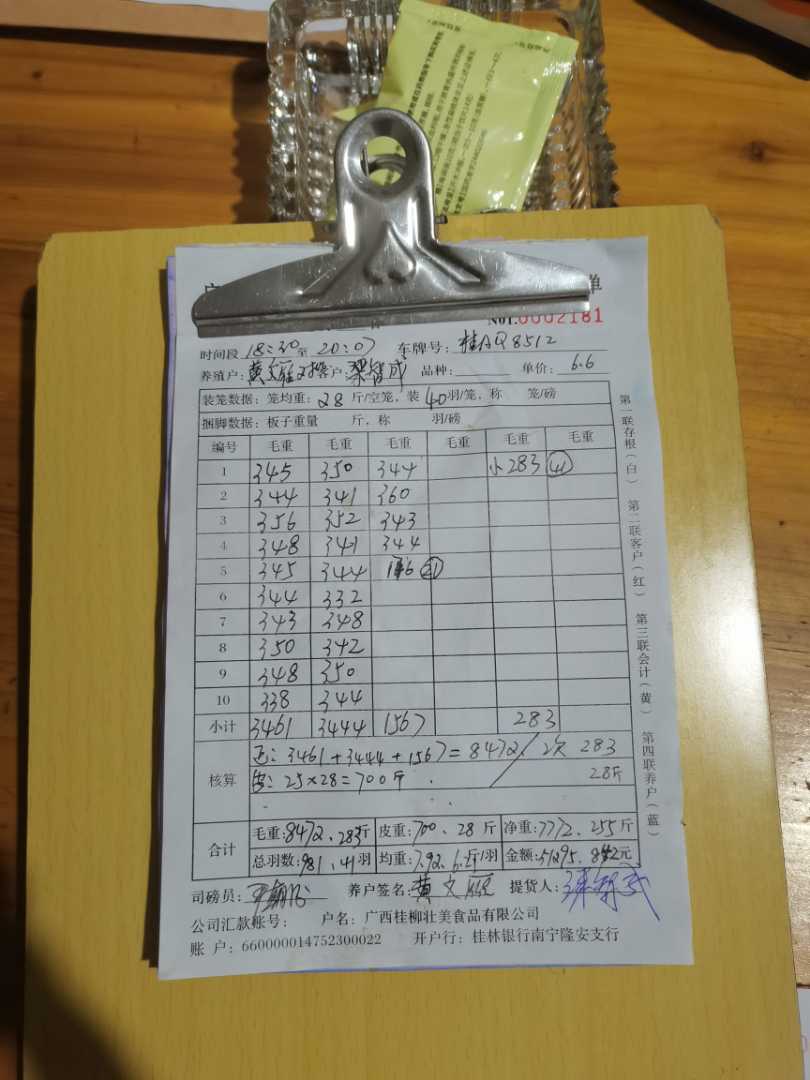 单
No1.0002181
时间段 18:30 至 20:07 车牌号: 桂AQ8512
养殖户: 黄文雁 客户: 梁智成 品种: 单价: 6.6
装笼数据: 笼均重: 28 斤/空笼, 装 40 羽/笼, 称 笼/磅
捆脚数据: 板子重量 斤, 称 羽/磅
编号 毛重 毛重 毛重 毛重 毛重 毛重
1 345 350 344 小283 (41)
2 344 341 360
3 356 352 343
4 348 341 344
5 345 344 176 (21)
6 344 332
7 343 348
8 350 342
9 348 350
10 338 344
小计 3461 3444 1567 283
核算 正: 3461+3444+1567=8472 / 次 283
皮: 25×28=700斤 28斤
合计 毛重: 8472、283斤 皮重: 700、28 斤 净重: 7772、255 斤
总羽数: 981、41 羽 均重: 7.92、6.2斤/羽 金额: 51295、842元
司磅员: 养户签名: 黄文雁 提货人:
公司汇款帐号: 户名: 广西桂柳壮美食品有限公司
账 户: 660000014752300022 开户行: 桂林银行南宁隆安支行
第一联存根(白) 第二联客户(红) 第三联会计(黄) 第四联养户(蓝)